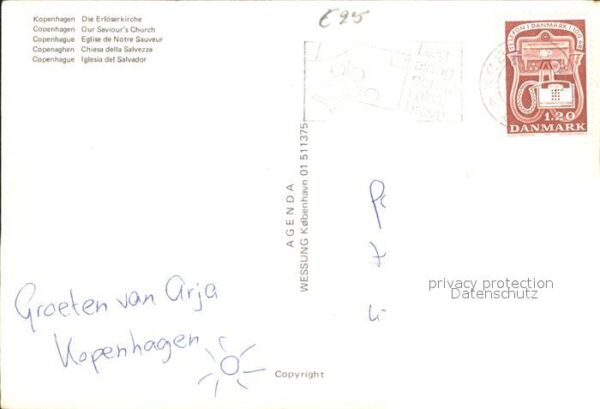 Kopenhagen Die Erlöserkirche
Copenhagen Our Saviour's Church
Copenhague Eglise de Notre Sauveur
Copenaghen Chiesa della Salvezza
Copenhague Iglesia del Salvador
€25
TELEFON I DANMARK I 100 ÅR
1.20
DANMARK
AGENDA
WESSUNG København 01 511375
Groeten van Arja
Kopenhagen
privacy protection
Datenschutz
Copyright